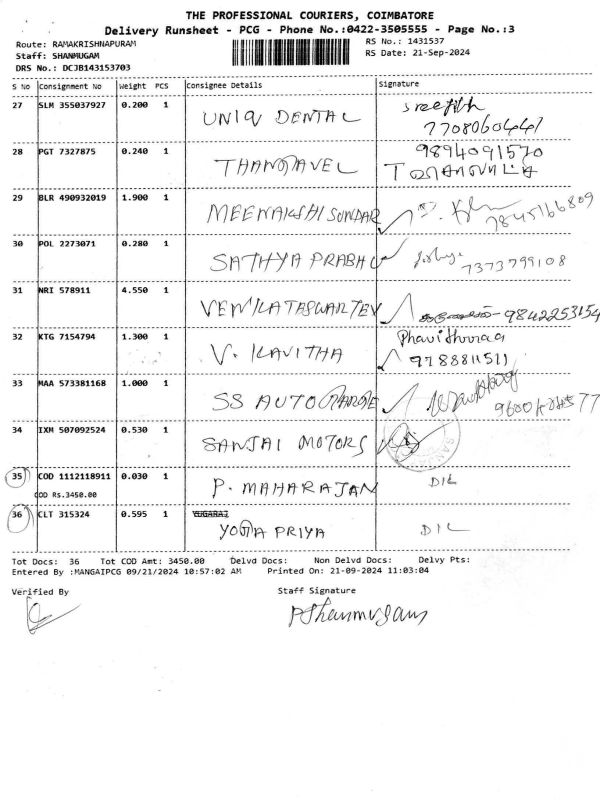 THE PROFESSIONAL COURIERS, COIMBATORE
Delivery Runsheet - PCG - Phone No.:0422-3505555 - Page No.:3
Route: RAMAKRISHNAPURAM
RS No.: 1431537
Staff: SHANMUGAM
RS Date: 21-Sep-2024
DRS No.: DCJB143153703
S No Consignment No Weight PCS Consignee Details Signature
27 SLM 355037927 0.200 1 UNIQ DENTAL
7708060441
28 PGT 7327875 0.240 1 THANGAVEL 9894091570
29 BLR 490932019 1.900 1 MEENAKSHI SUNDAR 7845166809
30 POL 2273071 0.280 1 SATHYA PRABHU 7373799108
31 NRI 578911 4.550 1 9842253154
32 KTG 7154794 1.300 1 V. KAVITHA
9788811511
33 MAA 573381168 1.000 1 SS AUTO
34 IXM 507092524 0.530 1 SANJAI MOTORS
35 COD 1112118911 0.030 1 P. MAHARAJAN DIL
COD Rs.3450.00
36 CLT 315324 0.595 1 YUGARAJ
YOGA PRIYA DIL
Tot Docs: 36 Tot COD Amt: 3450.00 Delvd Docs: Non Delvd Docs: Delvy Pts:
Entered By :MANGAIPCG 09/21/2024 10:57:02 AM Printed On: 21-09-2024 11:03:04
Verified By Staff Signature
PShanmugam